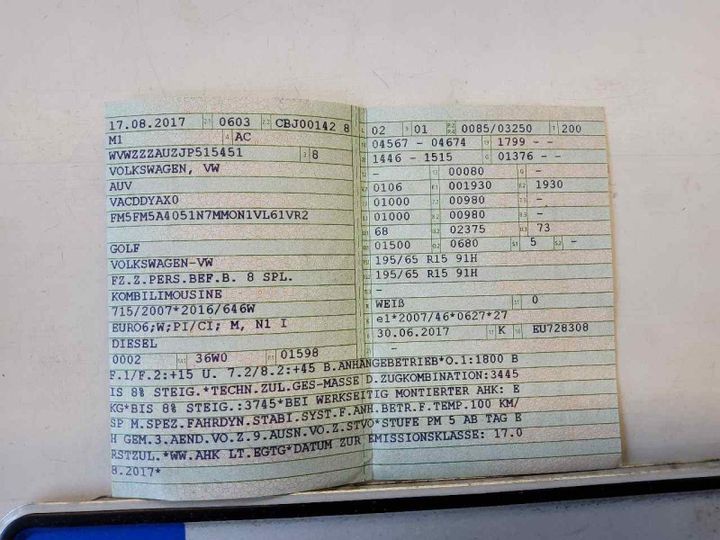 17.08.2017 0603 CBJ00142 8
M1 AC
WVWZZZAUZJP515451 8
VOLKSWAGEN, VW
AUV
VACDDYAX0
FM5FM5A4051N7MMON1VL61VR2
GOLF
VOLKSWAGEN-VW
FZ.Z.PERS.BEF.B. 8 SPL.
KOMBILIMOUSINE
715/2007*2016/646W
EURO6;W;PI/CI; M, N1 I
DIESEL
0002 36W0 01598
02 01 0085/03250 200
04567 - 04674 1799 - -
1446 - 1515 01376 - -
- 00080 -
0106 001930 1930
01000 00980 -
01000 00980 -
68 02375 73
01500 0680 5 -
195/65 R15 91H
195/65 R15 91H
-
WEIß 0
e1*2007/46*0627*27
30.06.2017 K EU728308
-
F.1/F.2:+15 U. 7.2/8.2:+45 B.ANHÄNGEBETRIEB*O.1:1800 B
IS 8% STEIG.*TECHN.ZUL.GES-MASSE D.ZUGKOMBINATION:3445
KG*BIS 8% STEIG.:3745*BEI WERKSEITIG MONTIERTER AHK: E
SP M.SPEZ.FAHRDYN.STABI.SYST.F.ANH.BETR.F.TEMP.100 KM/
H GEM.3.AEND.VO.Z.9.AUSN.VO.Z.STVO*STUFE PM 5 AB TAG E
RSTZUL.*WW.AHK LT.EGTG*DATUM ZUR EMISSIONSKLASSE: 17.0
8.2017*